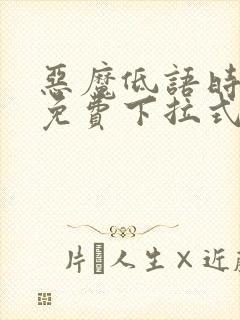 惡魔低語時
免費下拉式
片 人生×近